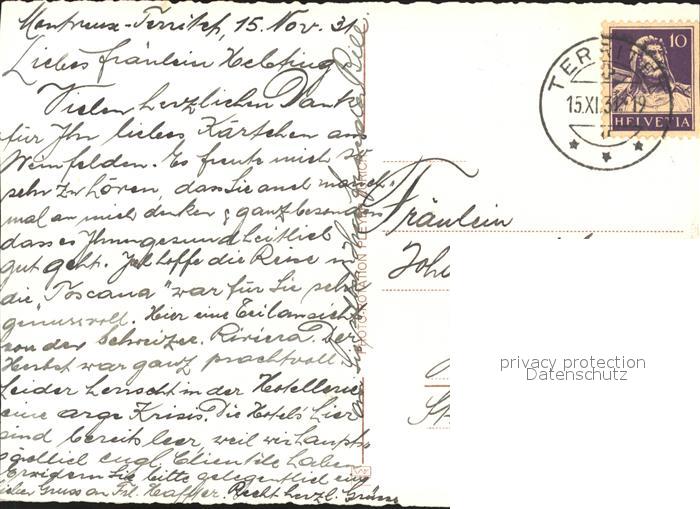 Montreux-Territet, 15. Nov. 31
Liebes Fräulein Helbling
Vielen herzlichen Dank
für Ihr liebes Kärtchen aus
Weinfelden. Es freute mich so
sehr zu hören, dass Sie auch manch-
mal an mich denken & ganz besonders
dass es Ihnen gesundheitlich
gut geht. Ich hoffe die Reise in
die "Toscana" war für Sie sehr
genussvoll. Hier eine Teilansicht
von der Schweizer. Riviera. Der
Herbst war ganz prachtvoll.
Leider herrscht in der Hotellerie
eine arge Krisis. Die Hotels hier
sind bereits leer, weil wir haupts-
sächlich engl. Clientèle haben
Erwidern Sie bitte gelegentlich
lieben Gruss an Frl. Haffter. Recht herzl. Grüsse
10
HELVETIA
TERRITET
15.XI.31-19
Fräulein
privacy protection
Datenschutz